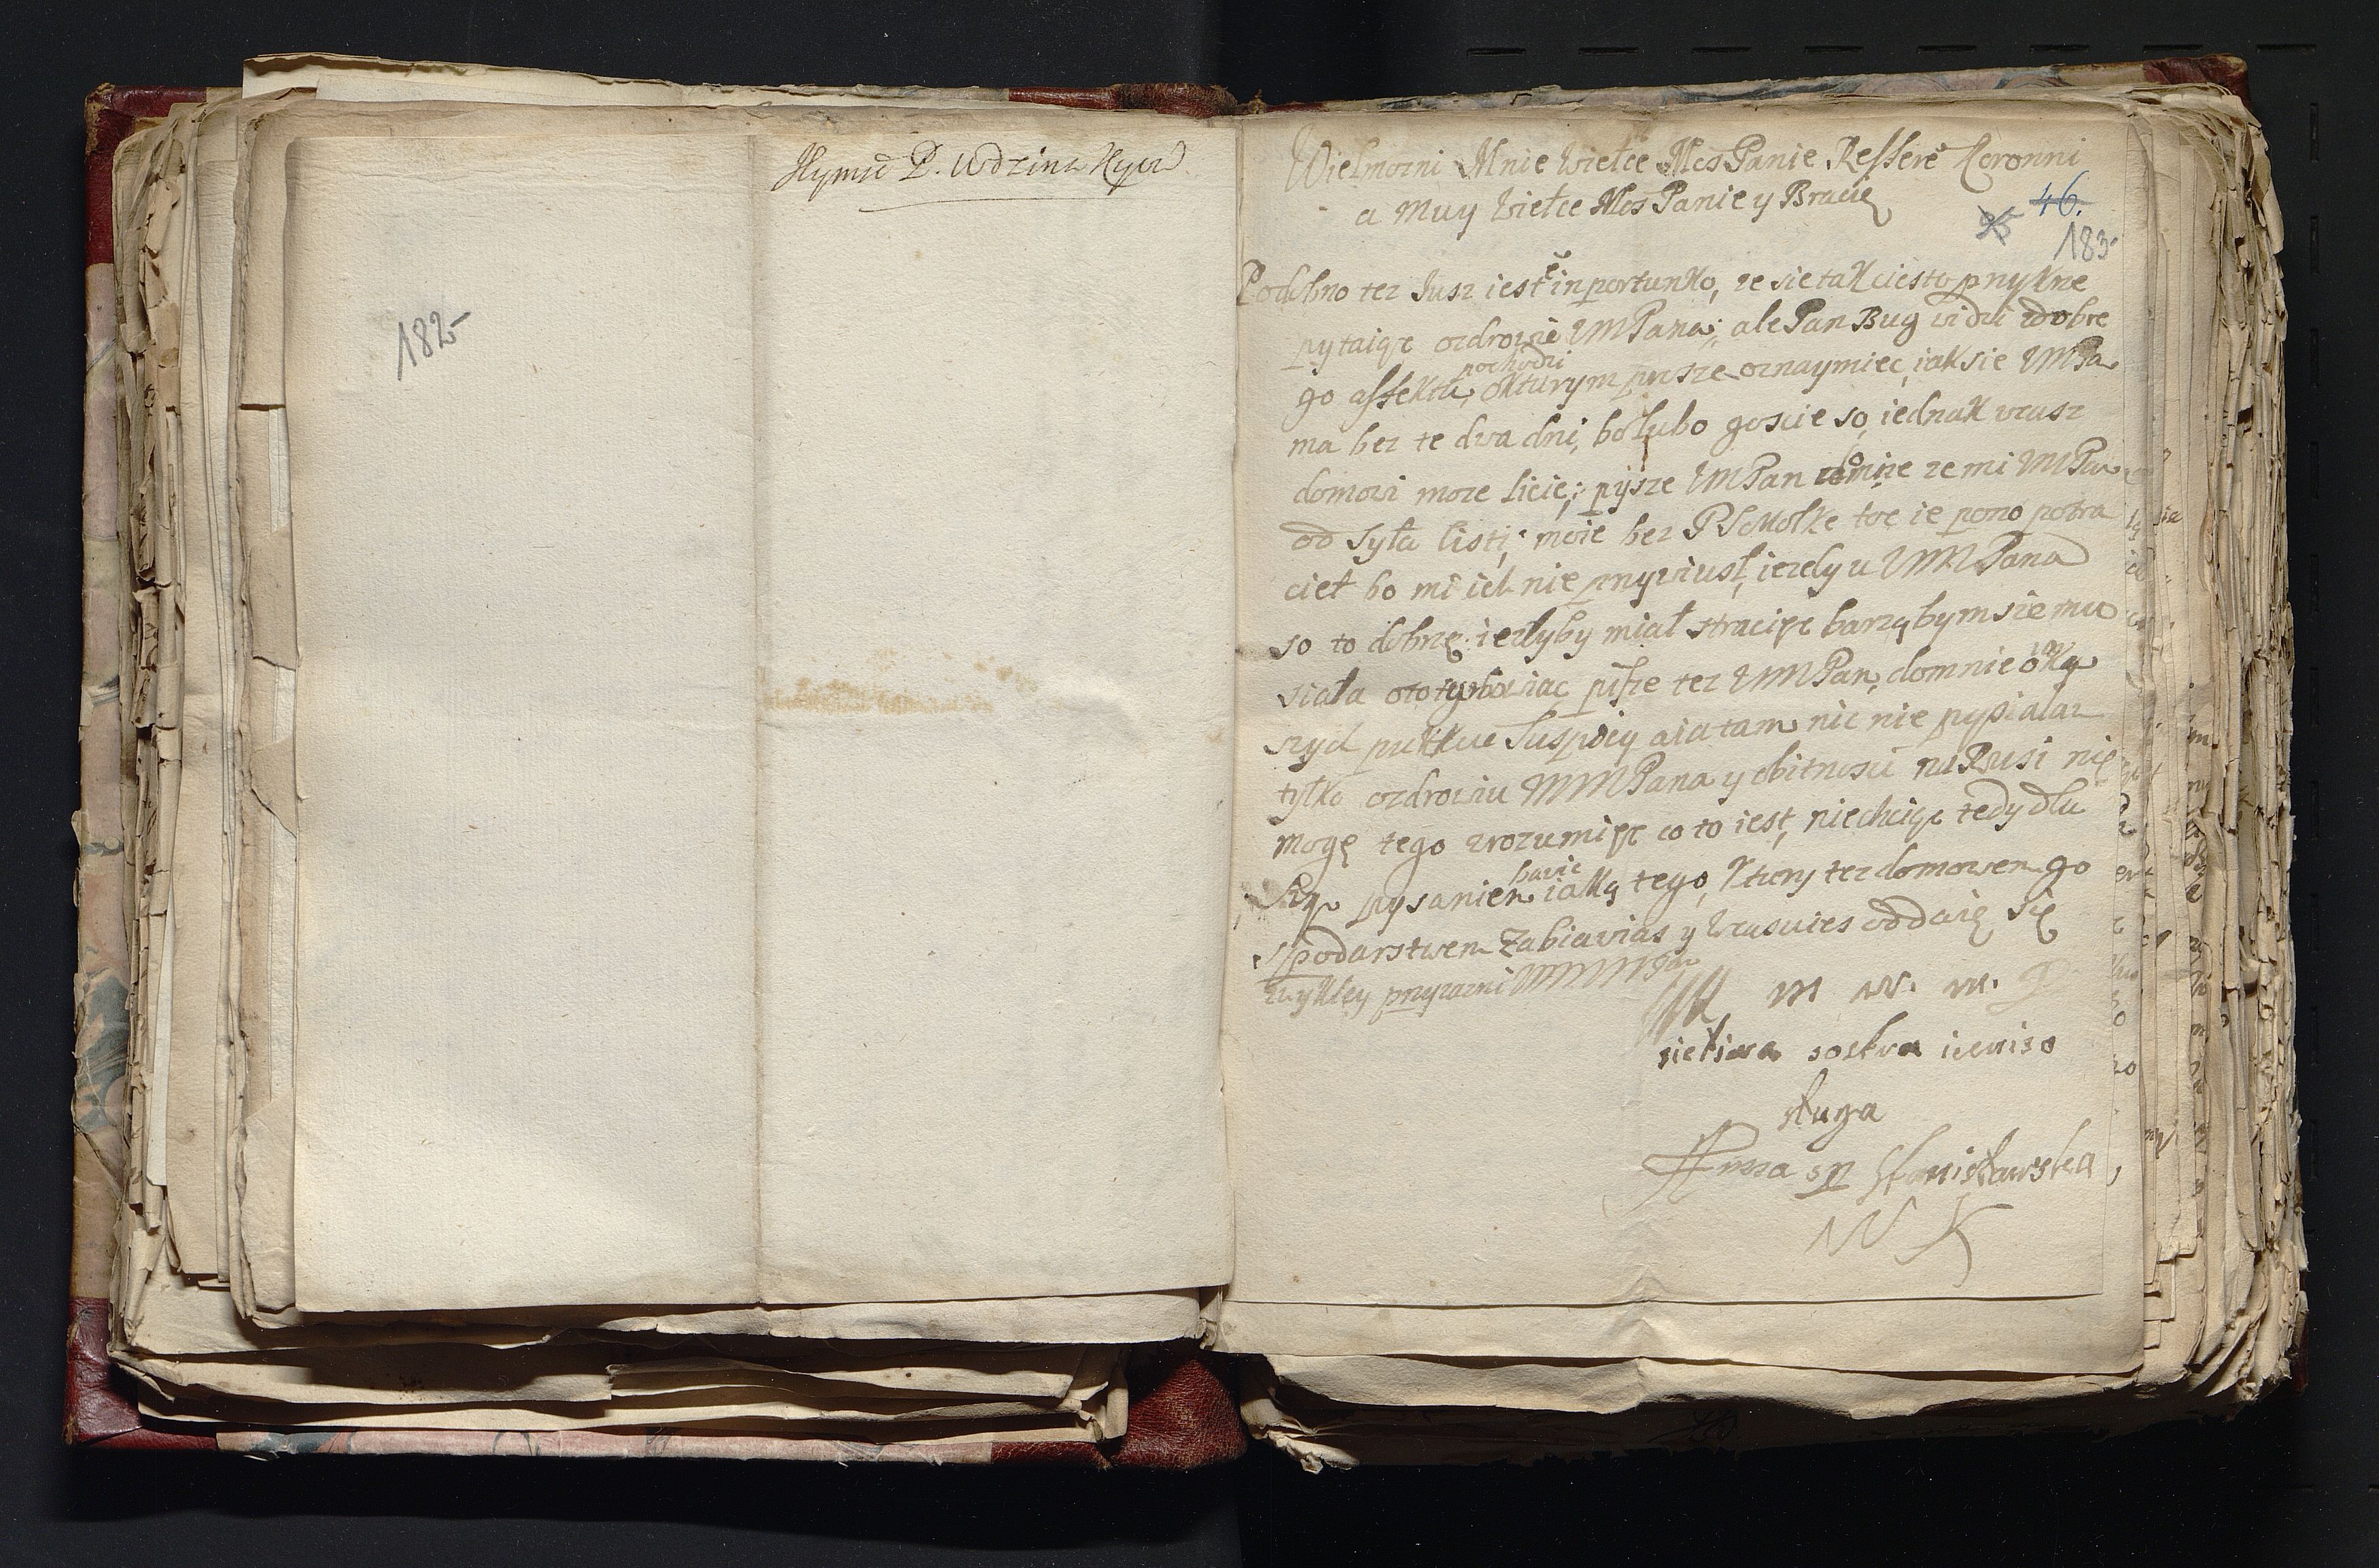 182
Jeymsc P. Wdzina Kyow
Wielmozni Mnie Wielce Mos Panie Refferę Koronni
a Muy Wielce Mos Panie y Bracie
46.
183
Podobno tez Jusz iest inportunko, ze sie tak ciesto pnykne
pytaiąc ozdrowie VMPana; ale Pan Bug widzi zdobre
pochodzi
go affektu, okturym pusze oznaymiec, iak sie VMPa
ma bez te dwa dni, bo lubo goscie so, iednak wcusz
domowi moze licie; pysze VMPan domnie ze mi VMPan
od syła listi, moie bez P Smolke toc ie pono potra
cieł bo mi ich nie pnywiusł, iezely u VMMPana
so to dobrze iezlyby miał stracięc barzą bym sie mu
siała oto tyrbowac pisze tez VMMPan, domnie oka
szyd pukkue Suspicy aia tam nic nie pysiałaz
tylko ozdrowiu VMMPana y obitnosci na Rusi nię
mogę tego zrozumięc co to iest, niechciąc tedy dlu
bawic
pysaniem iaką tego, ktury tez domowem go
spodarstwem zabiawias y Wcusuies oddaię się
zwykley pnyiazni
M W. M. P
siostra
sługa
Anna sP Stanisławska
WK